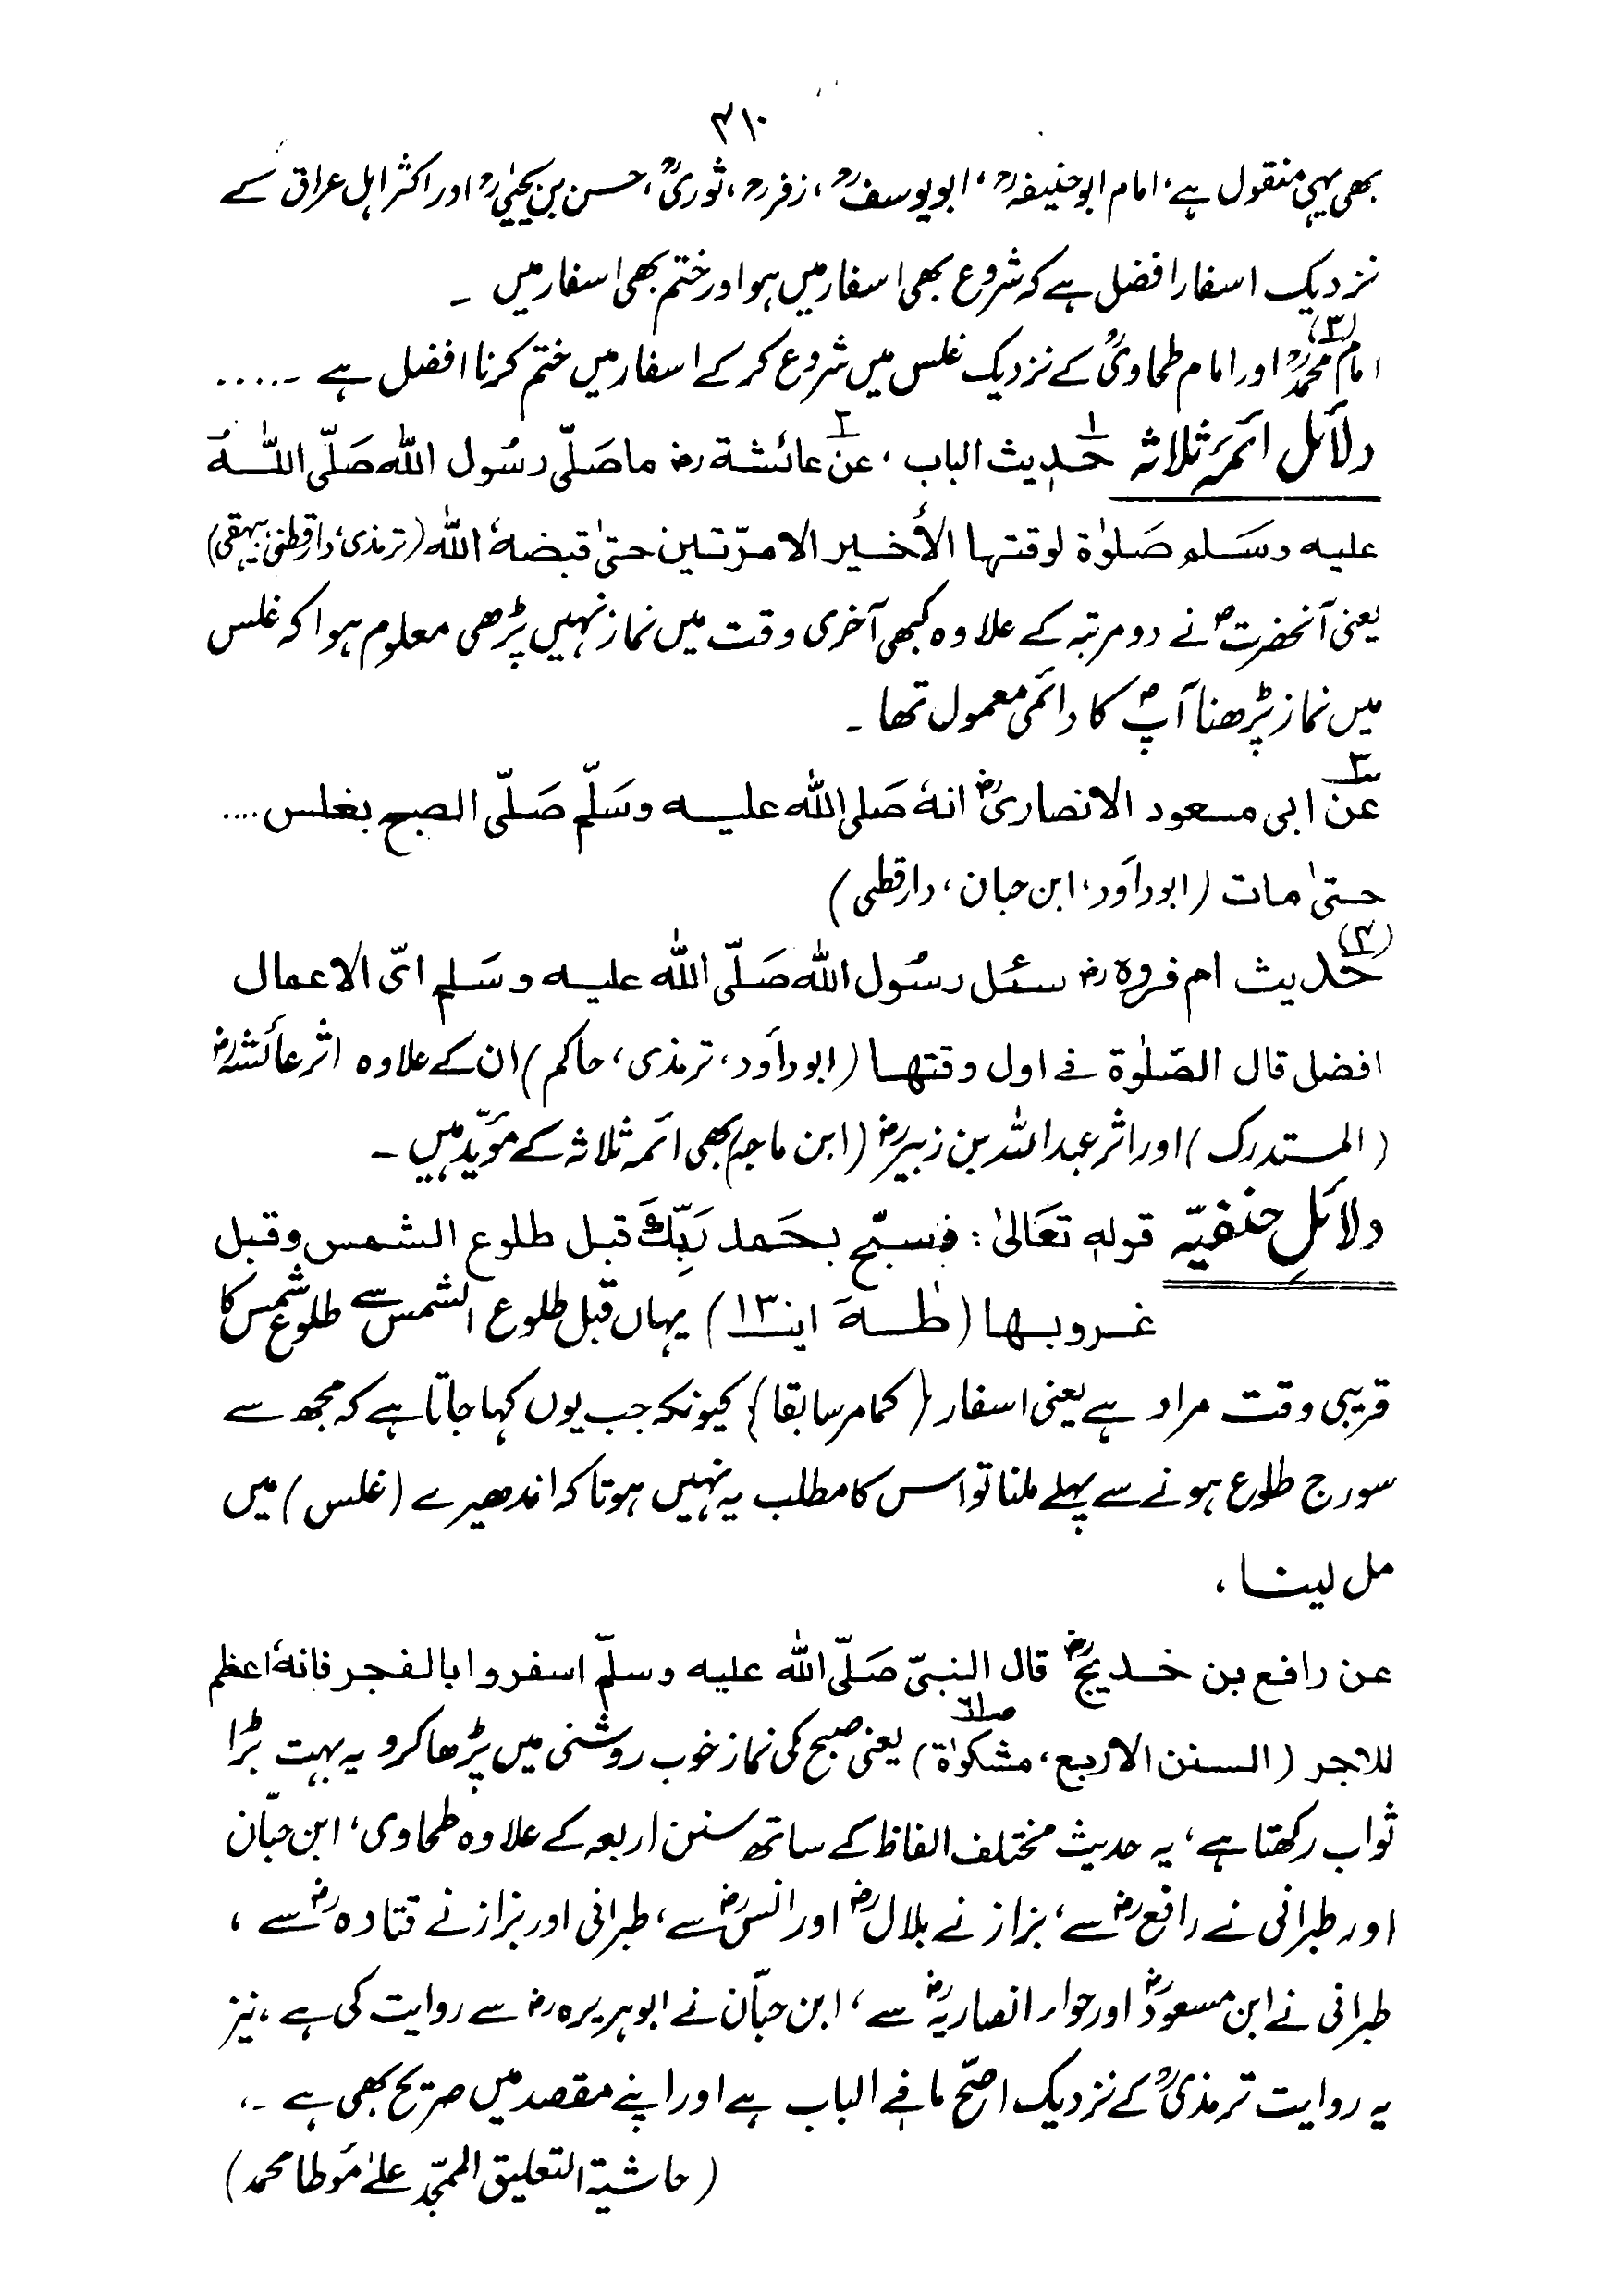 ۳۱۰
بھی یہی منقول ہے، امام ابوحنیفہؒ، ابویوسفؒ، زفرؒ، ثوریؒ، حسن بن یحییٰؒ اور اکثر اہل عراق کے
نزدیک اسفار افضل ہے کہ شروع بھی اسفار میں ہو اور ختم بھی اسفار میں ۔
(۳) امام محمدؒ اور امام طحاویؒ کے نزدیک غلس میں شروع کر کے اسفار میں ختم کرنا افضل ہے ۔....
دلائل ائمۂ ثلاثہ ۱ حدیث الباب، ۲ عن عائشة رض ماصَلّی رسُول اللّٰه صَلّی اللّٰهُ
علیه وسَلم صَلوٰة لوقتها الأخیر الا مرّتین حتیٰ قبضهٗ اللّٰه (ترمذی، دارقطنی، بیہقی)
یعنی آنحضرتؐ نے دو مرتبہ کے علاوہ کبھی آخری وقت میں نماز نہیں پڑھی معلوم ہوا کہ غلس
میں نماز پڑھنا آپؐ کا دائمی معمول تھا ۔
۳ عن ابی مسعود الانصاریؓ انهٗ صَلی اللّٰه علیه وسَلّم صَلّی الصبح بغلس ....
حتیٰ مات (ابوداؤد، ابن حبان، دارقطی)
(۴) حدیث ام فروہ رض سئل رسُول اللّٰه صَلّی اللّٰه علیه وسَلم ایّ الاعمال
افضل قال الصّلوٰة فے اول وقتها (ابوداؤد، ترمذی، حاکم) ان کے علاوہ اثر عائشہؓ
(المستدرک) اور اثر عبداللہ بن زبیرؓ (ابن ماجہ) بھی ائمہ ثلاثہ کے مؤیّد ہیں ۔
دلائلِ حنفیّہ قوله تعَالیٰ: فسبّح بحَمد رَبِّکَ قبل طلوع الشمس وقبل
غروبها (طٰهٰ اٰیة ۱۳) یہاں قبل طلوع الشمس سے طلوع شمس کا
قریبی وقت مراد ہے یعنی اسفار (کمامر سابقا) کیونکہ جب یوں کہا جاتا ہے کہ مجھ سے
سورج طلوع ہونے سے پہلے ملنا تو اس کا مطلب یہ نہیں ہوتا کہ اندھیرے (غلس) میں
مل لینا،
عن رافع بن خدیجؓ قال النبیّ صَلّی اللّٰه علیه وسلّم اسفروا بالفجر فانهٗ اعظم
للاجر (السنن الاربع، مشکوٰة ص۶۱) یعنی صبح کی نماز خوب روشنی میں پڑھا کرو یہ بہت بڑا
ثواب رکھتا ہے، یہ حدیث مختلف الفاظ کے ساتھ سنن اربعہ کے علاوہ طحاوی، ابن حبّان
اور طبرانی نے رافعؓ سے، بزاز نے بلالؓ اور انسؓ سے، طبرانی اور بزاز نے قتادہؓ سے،
طبرانی نے ابن مسعودؓ اور حواء انصاریہؓ سے، ابن حبّان نے ابوہریرہ رض سے روایت کی ہے، نیز
یہ روایت ترمذیؒ کے نزدیک اصحّ مافے الباب ہے اور اپنے مقصد میں صریح بھی ہے ۔،
(حاشیۃ التعلیق الممجّد علیٰ مؤطا محمد)